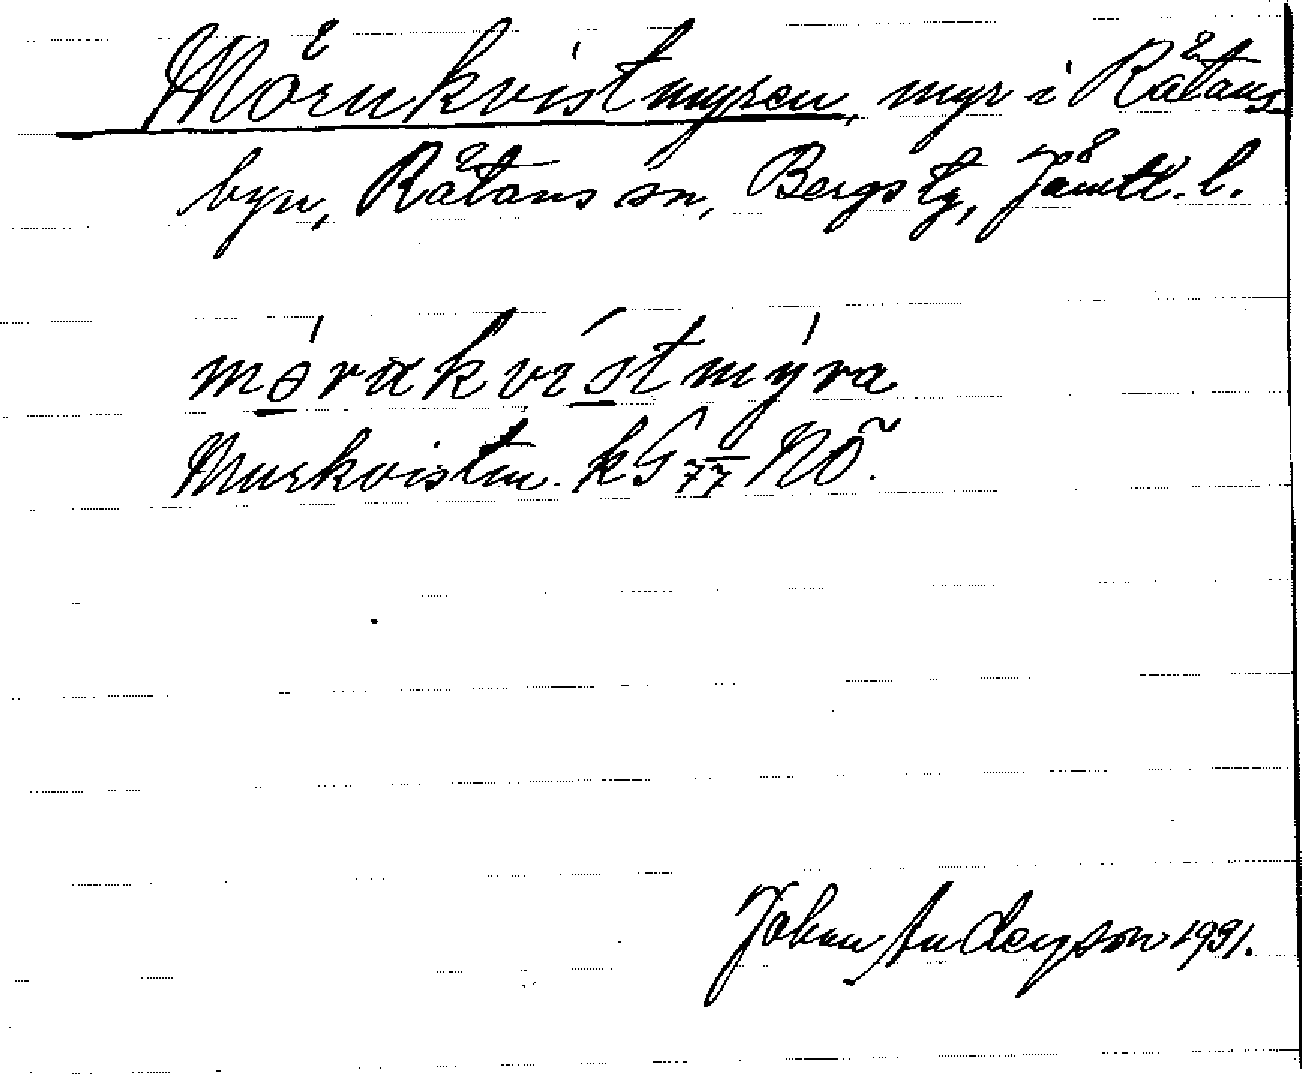 Mörnkvistmyren, myr i Rätans
byn, Rätans sn, Bergs tg, Jämtl. l.
mö́rakvístmýra
Murkvistm. kG 77 NÖ.
Johan Anderson 1931.